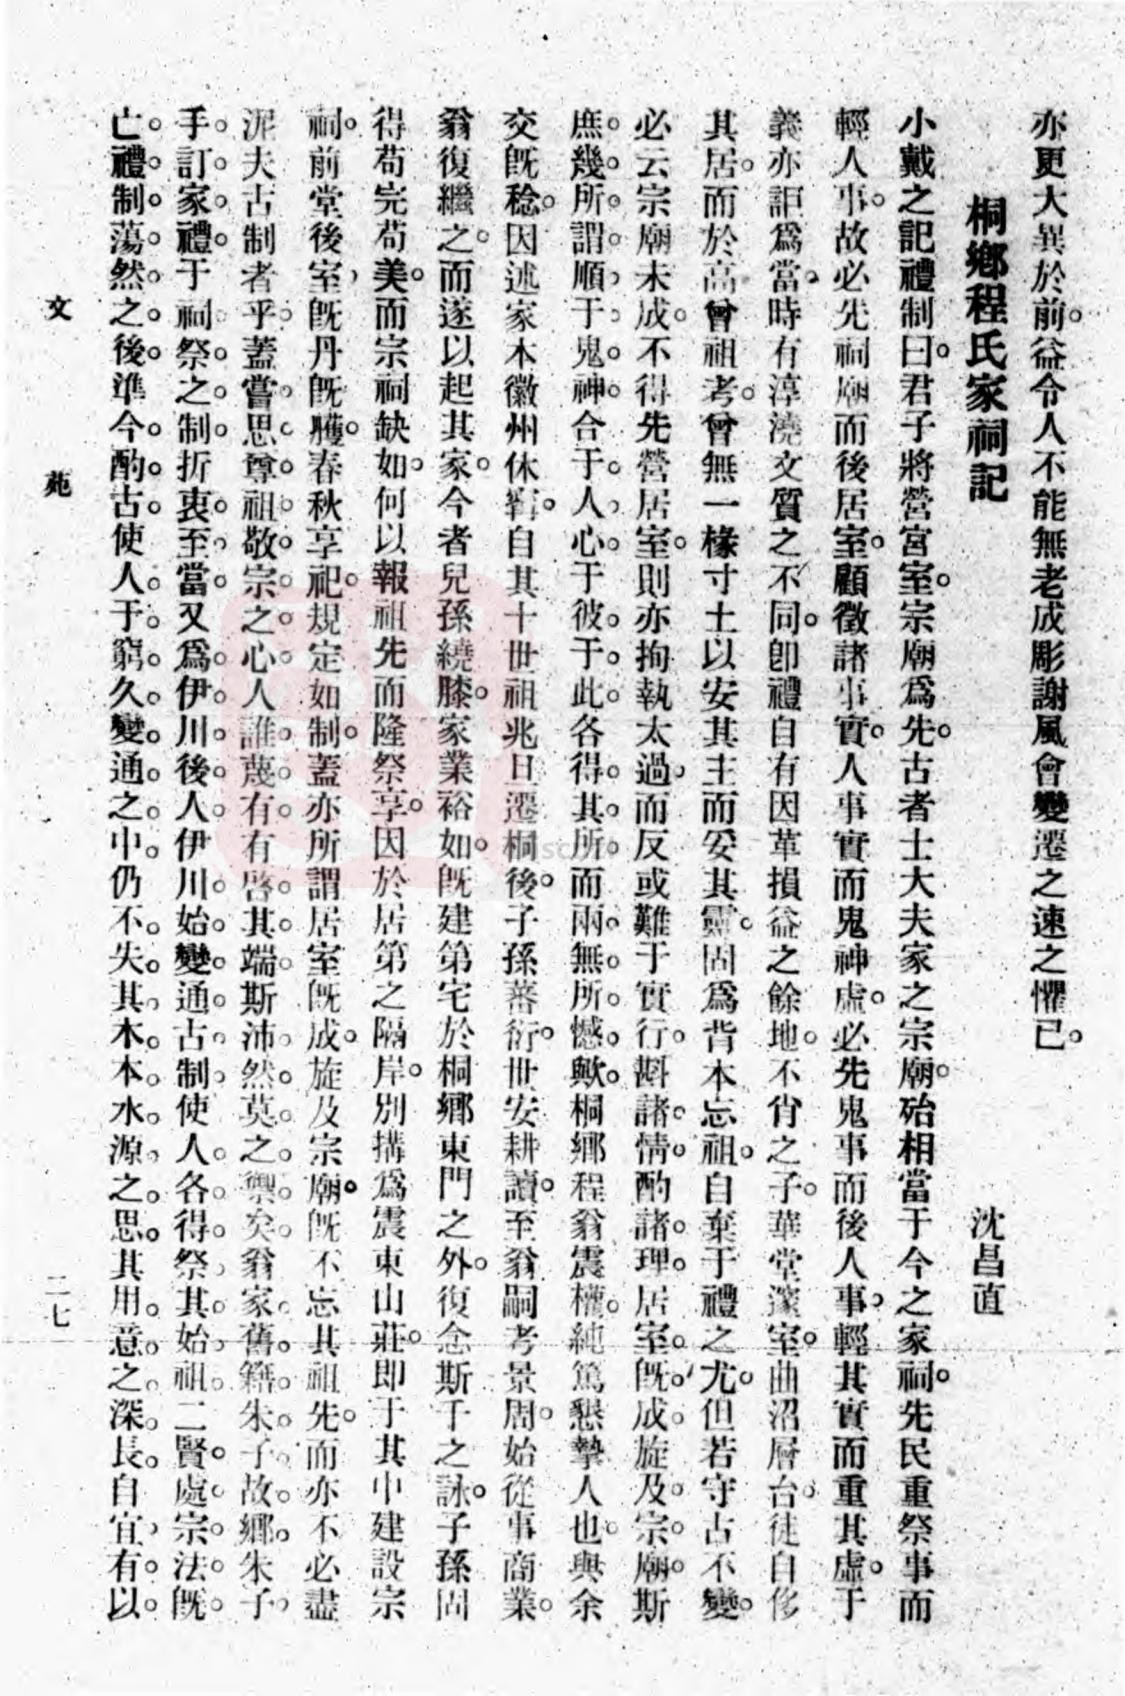 亦更大異於前。益令人不能無老成彫謝風會變遷之速之懼已。
桐鄉程氏家祠記　沈昌直
小戴之記禮制曰。君子將營宮室。宗廟爲先。古者士大夫家之宗廟。殆相當于今之家祠。先民重祭事而
輕人事。故必先祠廟而後居室。顧徵諸事實。人事實而鬼神虛。必先鬼事而後人事。輕其實而重其虛。于
義亦詎爲當。時有淳澆文質之不同。卽禮自有因革損益之餘地。不肖之子。華堂邃室。曲沼層台。徒自侈
其居。而於高曾祖考。曾無一椽寸土以安其主而妥其靈。固爲背本忘祖。自棄于禮之尤。但若守古不變。
必云宗廟未成。不得先營居室。則亦拘執太過。而反或難于實行。斟諸情。酌諸理。居室旣成。旋及宗廟。斯
庶幾所謂順于鬼神合于人心于彼于此。各得其所。而兩無所憾歟。桐鄉程翁震權。純篤懇摯人也。與余
交旣稔。因述家本徽州休寗。自其十世祖兆日遷桐後。子孫蕃衍。世安耕讀。至翁嗣考景周。始從事商業。
翁復繼之。而遂以起其家。今者兒孫繞膝。家業裕如。旣建第宅於桐鄉東門之外。復念斯干之詠。子孫固
得苟完苟美。而宗祠缺如。何以報祖先而隆祭享。因於居第之隔岸。別搆爲震東山莊。即于其中建設宗
祠。前堂後室。旣丹旣雘。春秋享祀。規定如制。蓋亦所謂居室旣成。旋及宗廟。旣不忘其祖先。而亦不必盡
泥夫古制者乎。蓋嘗思尊祖敬宗之心。人誰蔑有。有啓其端。斯沛然莫之禦矣。翁家舊籍。朱子故鄉。朱子
手訂家禮。于祠祭之制。折衷至當。又爲伊川後人。伊川始變通古制。使人各得祭其始祖。二賢處宗法旣
亡。禮制蕩然之後。準今酌古。使人于窮久變通之中。仍不失其木本水源之思。其用意之深長。自宜有以
文苑　二七